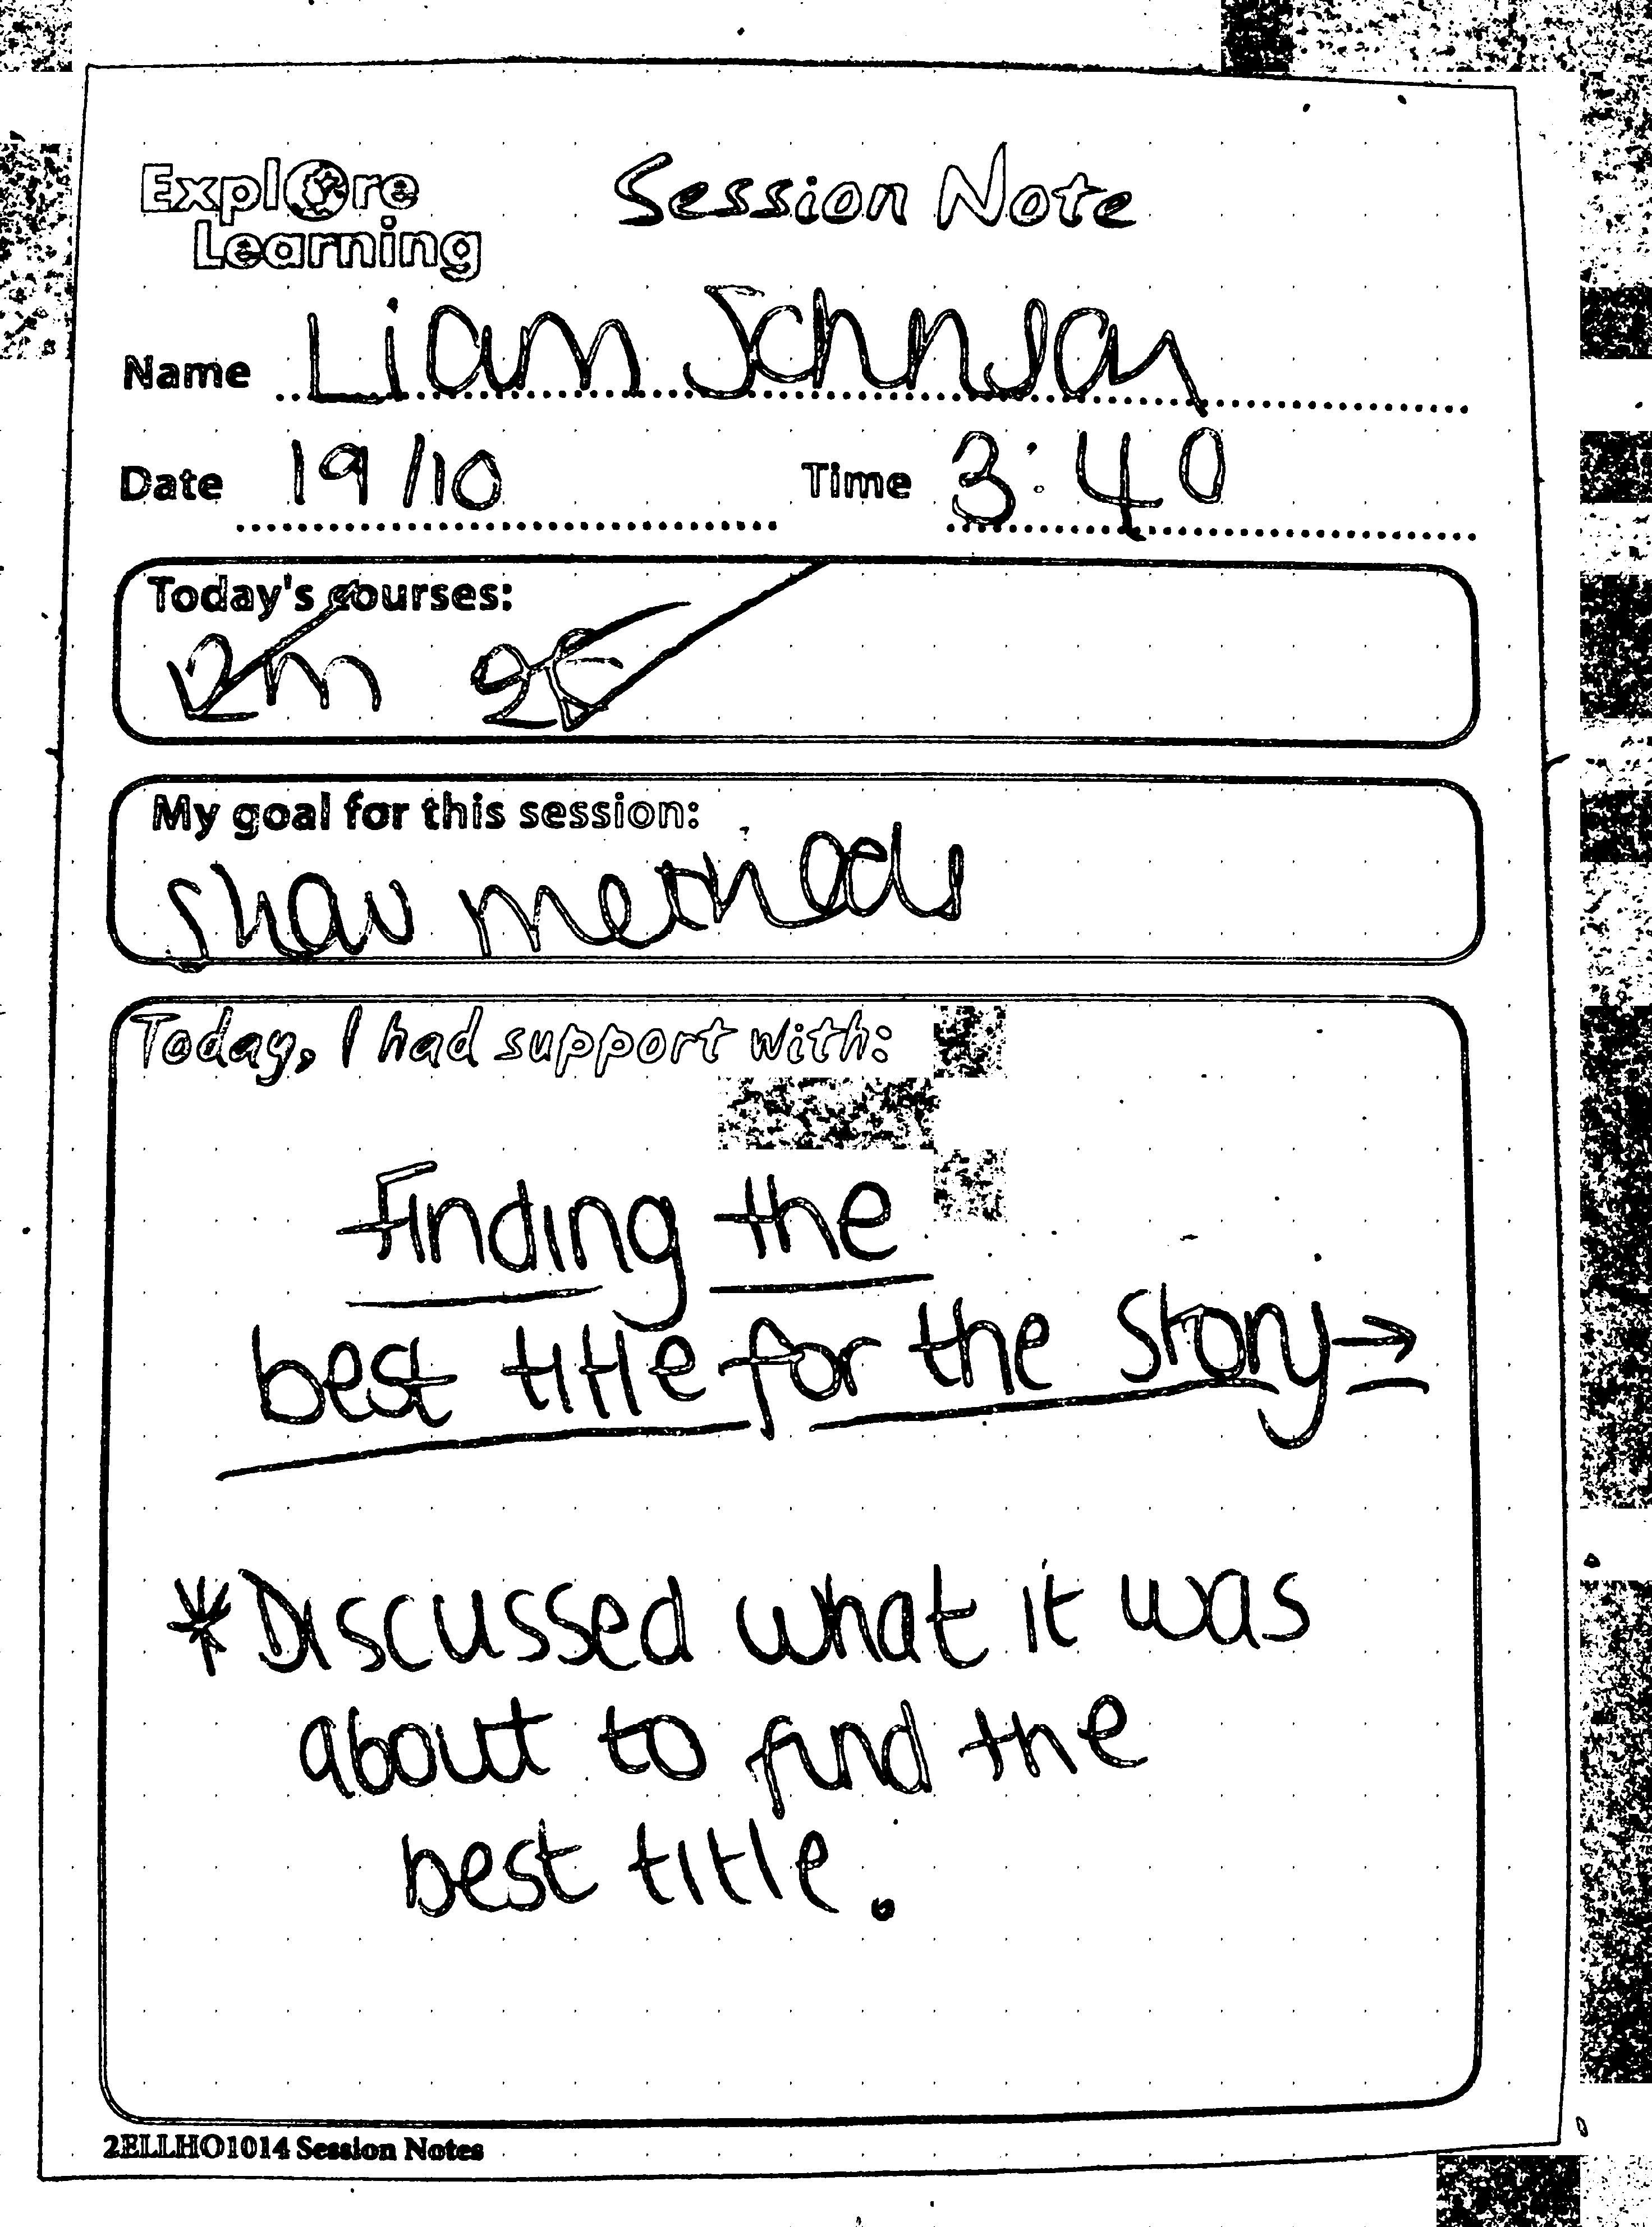 Explore
Learning
Session Note
Name Liam Johnson
Date 19/10 Time 3:40
Today's courses:
2m 2E
My goal for this session:
show methods
Today, I had support with:
Finding the
best title for the story →
* Discussed what it was
about to find the
best title.
2ELLHO1014 Session Notes